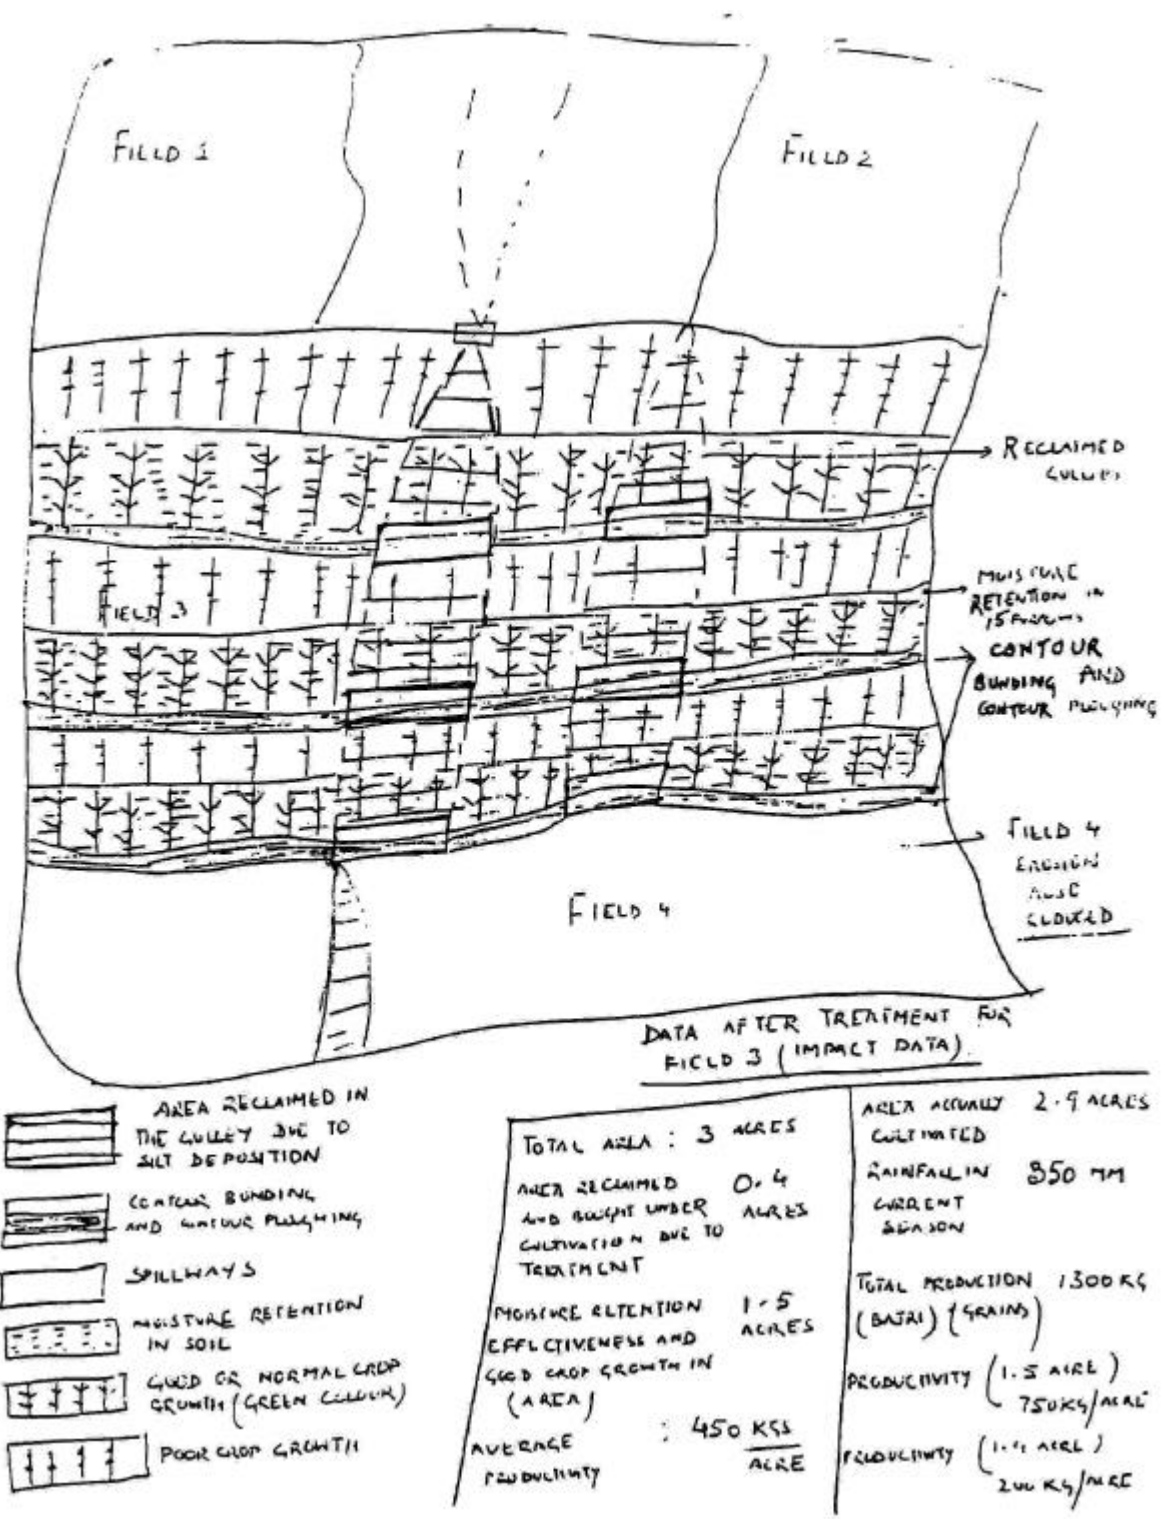 FIELD 1
FIELD 2
RECLAIMED
GULLIES
MOISTURE
RETENTION IN
FIELD 3
CONTOUR
BUNDING AND
CONTOUR PLOUGHING
FIELD 4
EROSION
ALSO
FIELD 4
DATA AFTER TREATMENT FOR
FIELD 3 (IMPACT DATA).
AREA RECLAIMED IN
THE GULLEY DUE TO
SILT DEPOSITION
CONTOUR BUNDING
AND CONTOUR PLOUGHING
SPILLWAYS
MOISTURE RETENTION
IN SOIL
GOOD OR NORMAL CROP
GROWTH (GREEN COLOUR)
POOR CROP GROWTH
TOTAL AREA : 3 ACRES
AREA RECLAIMED 0.4
AND BOUGHT UNDER ACRES
CULTIVATION DUE TO
TREATMENT
MOISTURE RETENTION 1.5
EFFECTIVENESS AND ACRES
GOOD CROP GROWTH IN
(AREA)
AVERAGE : 450 KGS
PRODUCTIVITY ACRE
AREA ACTUALLY 2.9 ACRES
CULTIVATED
RAINFALL IN 350 MM
CURRENT
SEASON
TOTAL PRODUCTION 1300 KG
(BAJRI) (GRAINS)
PRODUCTIVITY (1.5 ACRE)
750 KG/ACRE
PRODUCTIVITY (1.4 ACRE)
200 KG/ACRE